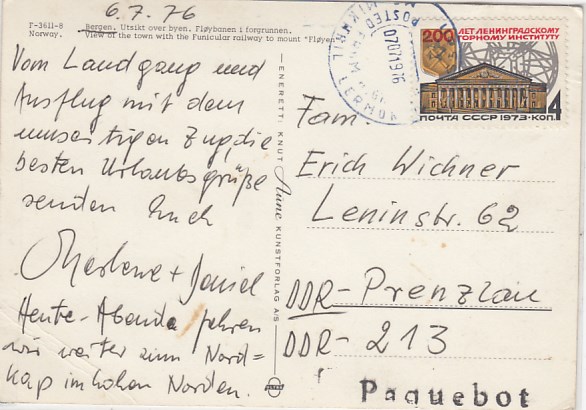 6.7.76
F-3611-8
Norway.
Bergen. Utsikt over byen. Fløybanen i forgrunnen.
View of the town with the Funicular railway to mount "Fløyen"
Vom Landgang und
Ausflug mit dem
Zug, die
besten Urlaubsgrüße
senden Euch
Marlene + Daniel
Heute Abend fahren
wir weiter zum Nord=
kap im hohen Norden.
ENERETT: KNUT Aune KUNSTFORLAG A/S
POSTED FROM
07071976
200 ЛЕТ ЛЕНИНГРАДСКОМУ
ГОРНОМУ ИНСТИТУТУ
ПОЧТА СССР 1973·КОП. 4
Fam.
Erich Wichner
Leninstr. 62
DDR-Prenzlau
DDR-213
Paquebot